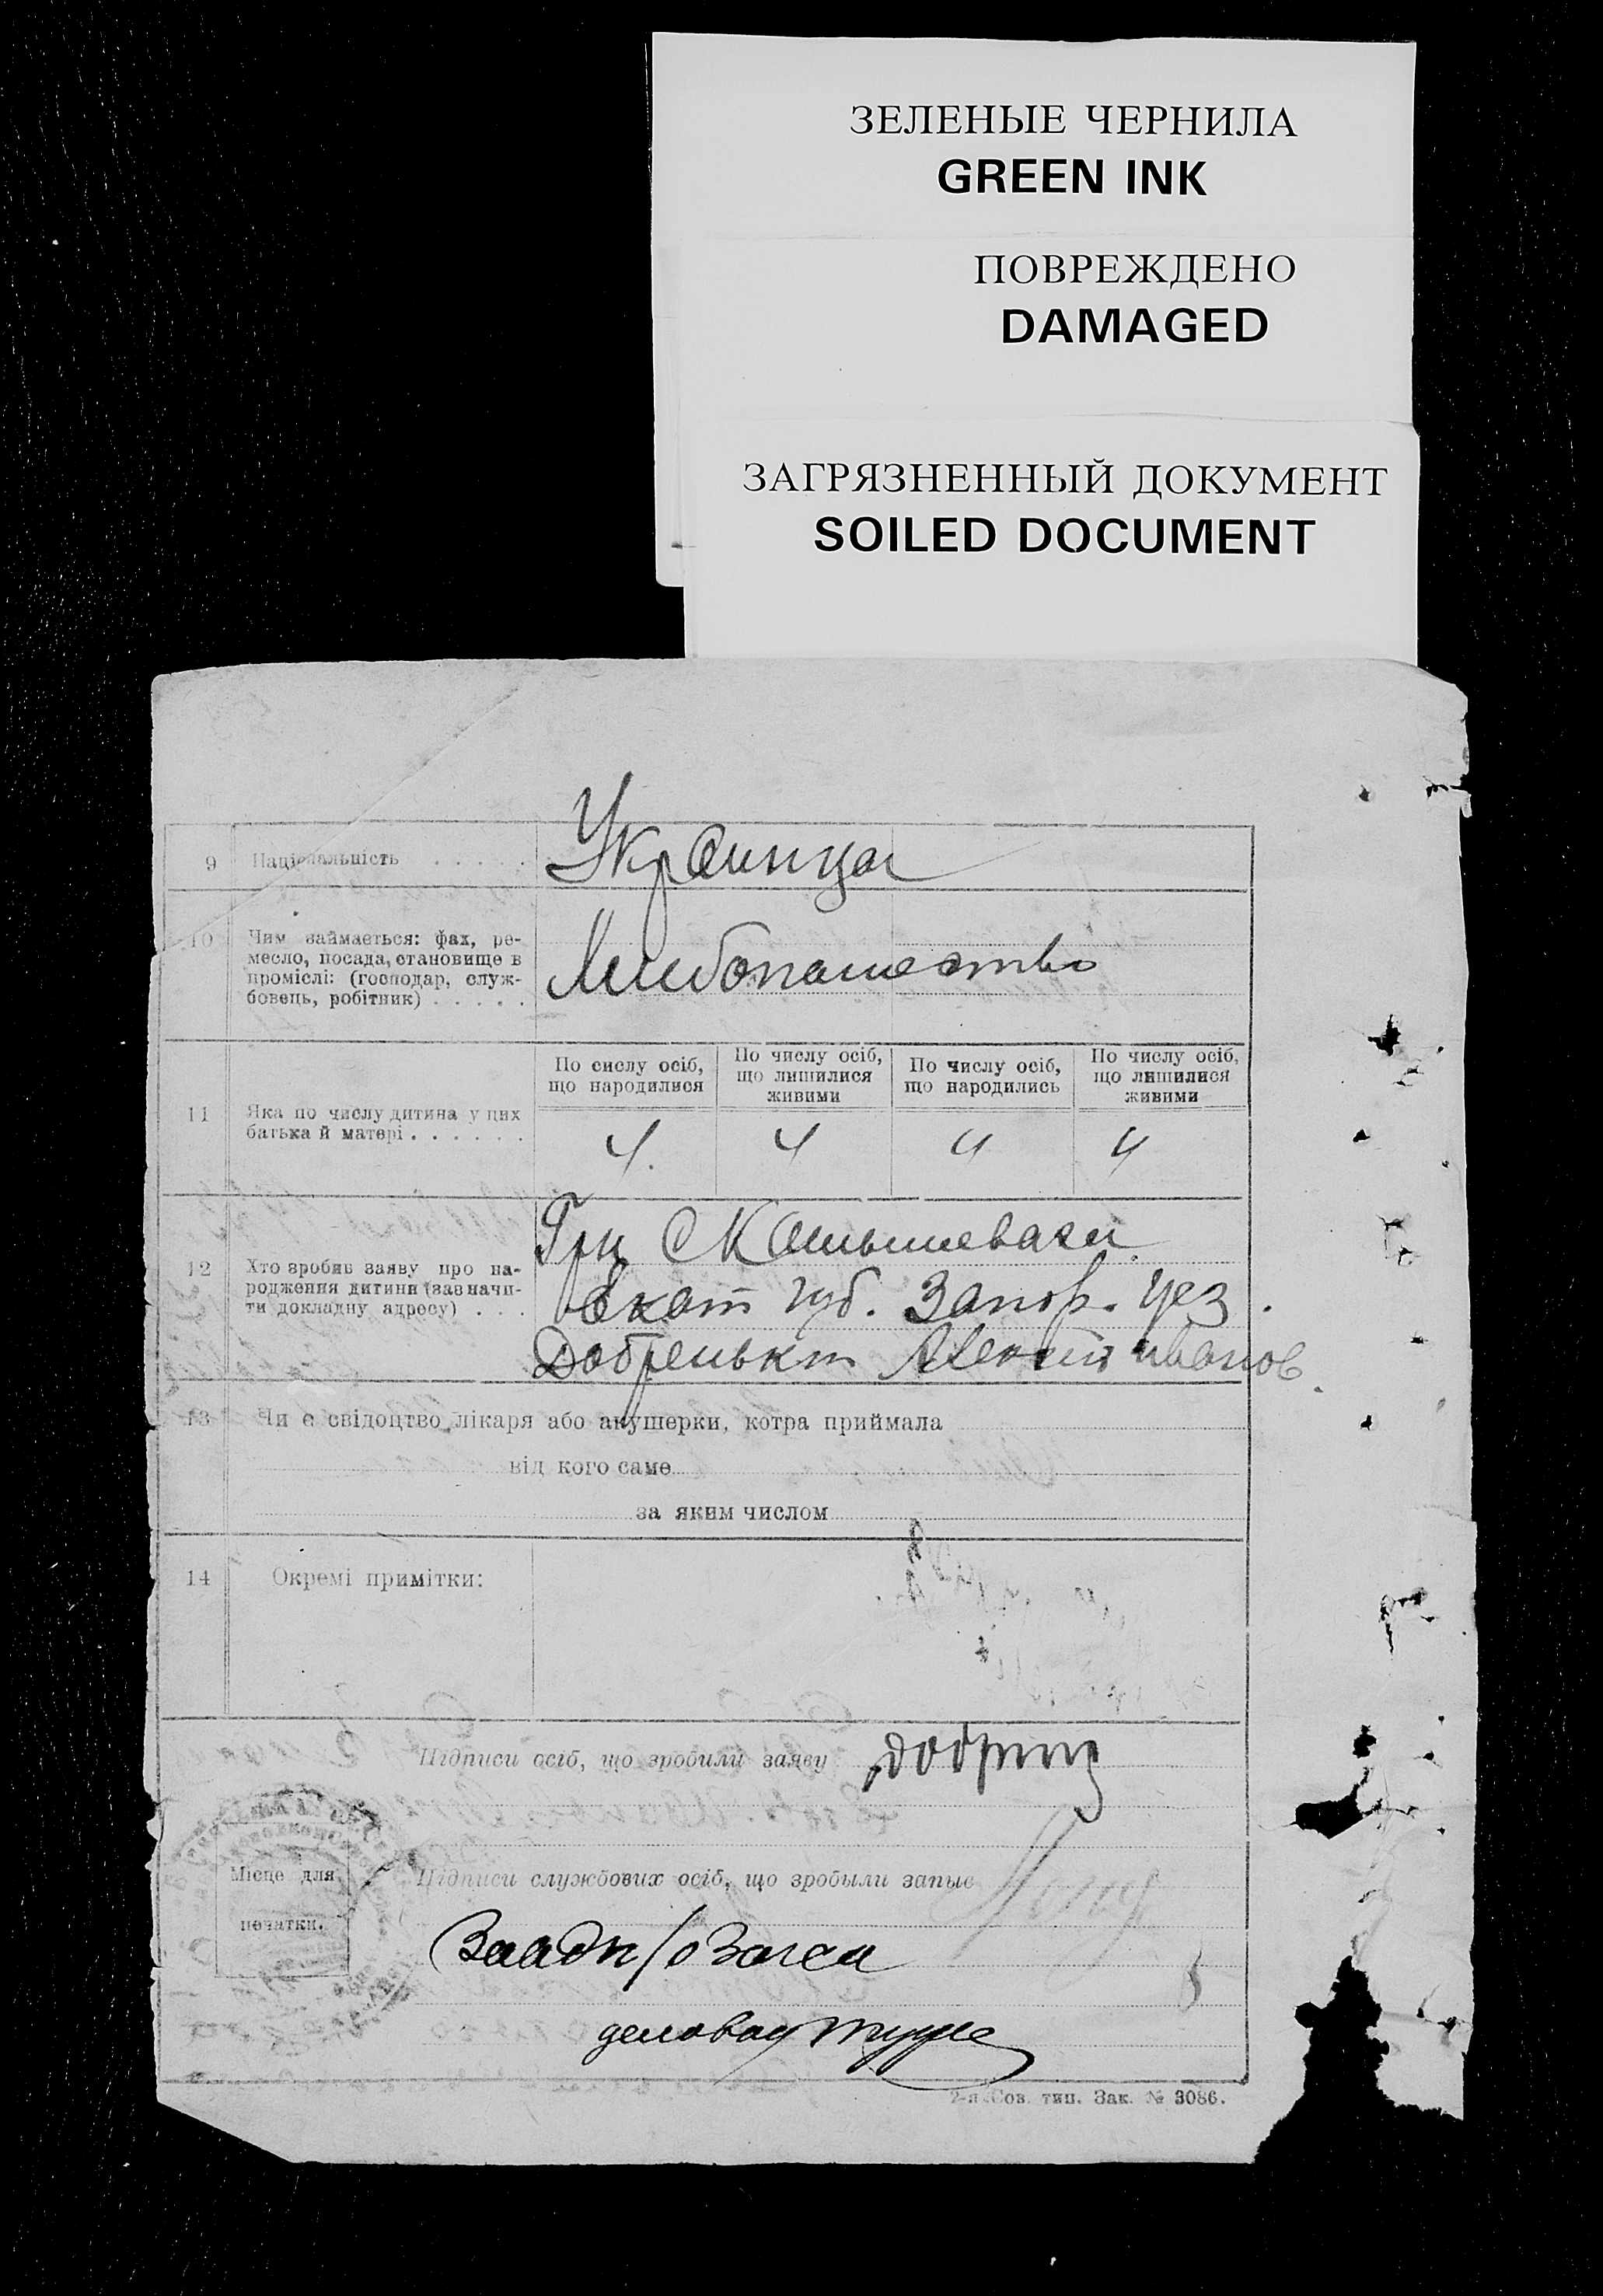 ЗЕЛЕНЫЕ ЧЕРНИЛА
GREEN INK
ПОВРЕЖДЕНО
DAMAGED
ЗАГРЯЗНЕННЫЙ ДОКУМЕНТ
SOILED DOCUMENT
9 Національність . . . . . Украинца
10 Чим займаеться: фах, ре-
месло, посада, становище в
промислі: (господар, служ-
бовець, робітник) . . . . .
Хлебопашество
По сислу осіб,
що народилися
По числу осіб,
що лишилися
живими
По числу осіб,
що народились
По числу осіб,
що лишилися
живими
11 Яка по числу дитина у цих
батька й матері . . . . . .
4. 4 4 4
12 Хто зробив заяву про на-
родження дитини (зазначи-
ти докладну адресу) . . .
Гр
Екат губ. Запор. Уез.
Иванов
13 Чи є свідоцтво лікаря або акушерки, котра приймала
від кого саме
за яким числом
14 Окремі примітки:
Підписи осіб, що зробили заяву
Місце для
печатки.
Підписи службових осіб, що зробыли запыс
Загса
2-я Сов. тип. Зак. № 3086.